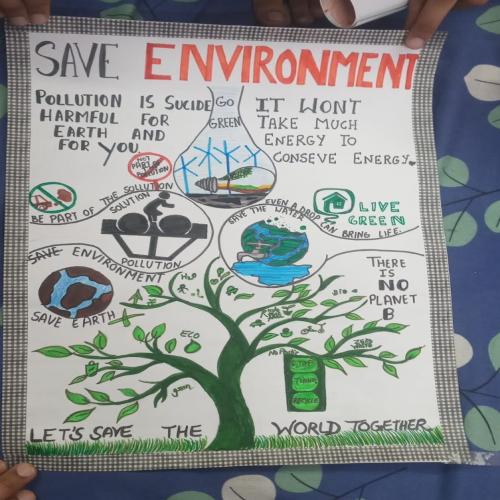 SAVE ENVIRONMENT
POLLUTION IS SUCIDE
HARMFUL FOR
EARTH AND
FOR YOU
GO
GREEN
IT WONT
TAKE MUCH
ENERGY TO
CONSEVE ENERGY.
NOT
PART OF
POLLUTION
BE PART OF THE SOLUTION
SOLUTION
POLLUTION
SAVE THE WATER
EVEN A DROP CAN BRING LIFE.
LIVE
GREEN
SAVE ENVIRONMENT
SAVE EARTH
THERE
IS
NO
PLANET
B
H₂O
ECO
BIO
RECYCLE
LET'S SAVE THE WORLD TOGETHER